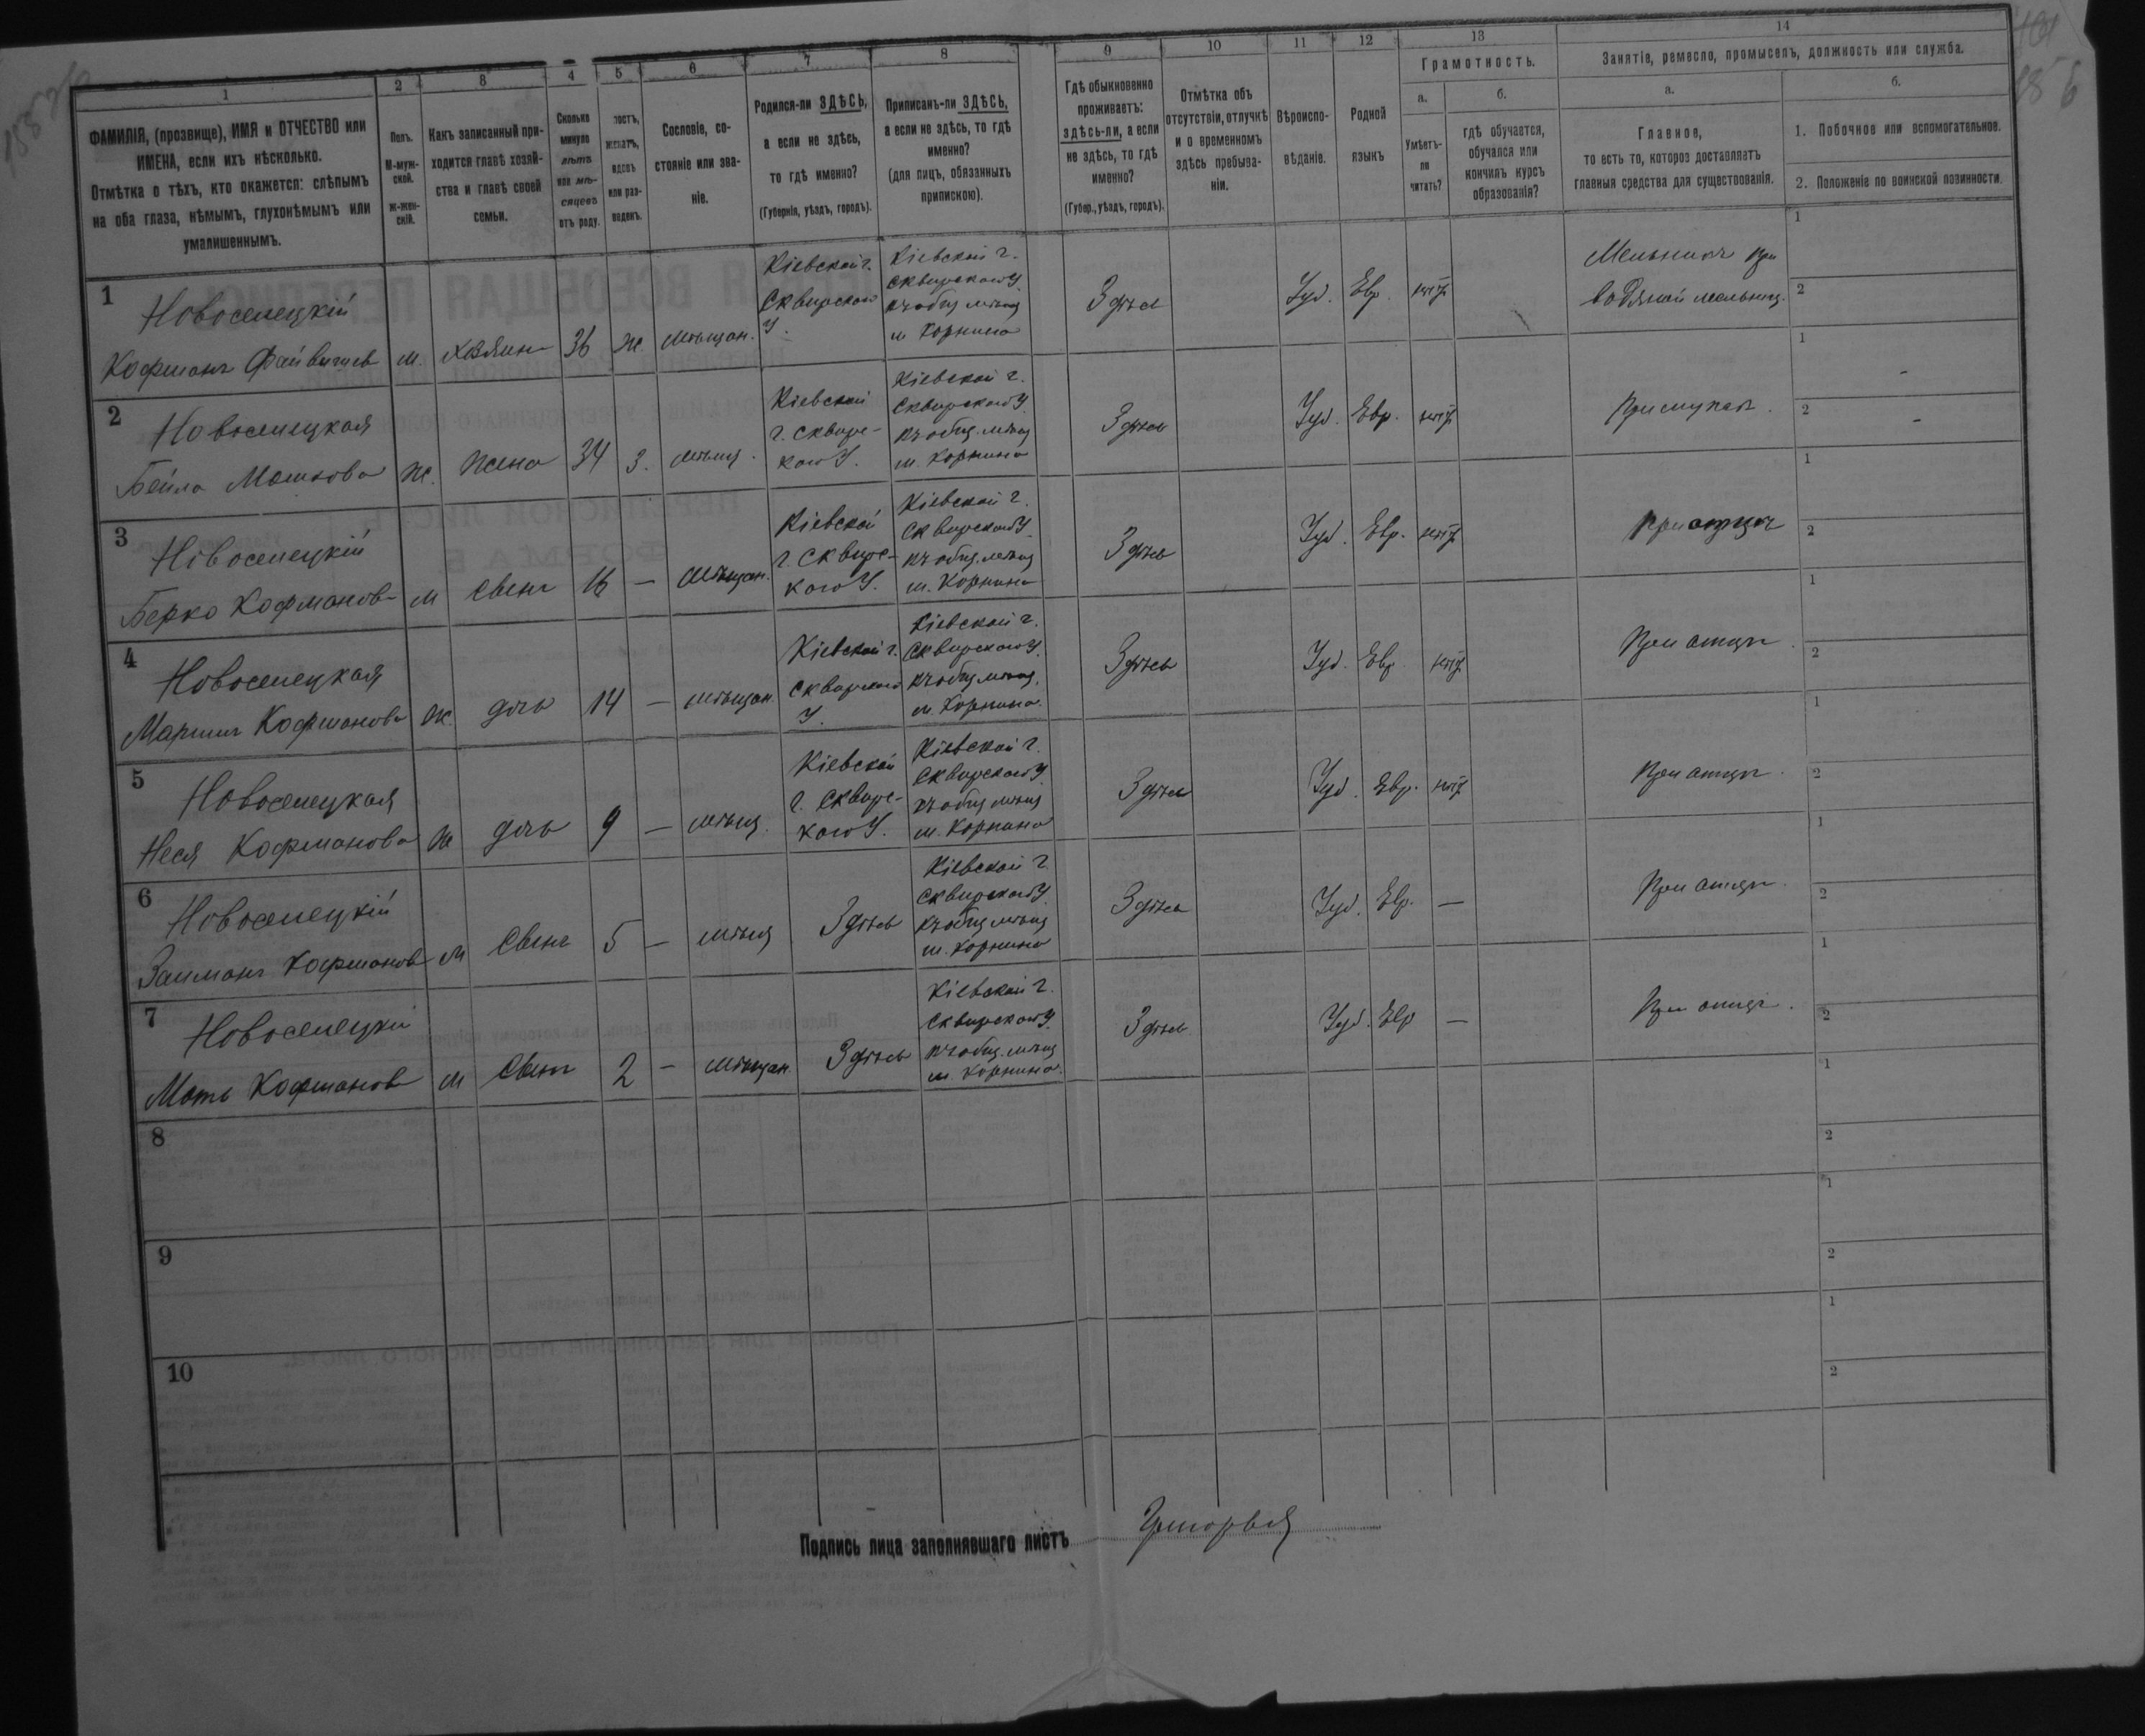 1 2 3 4 5 6 7 8 9 10 11 12 13 14
ФАМИЛІЯ, (прозвище), ИМЯ и ОТЧЕСТВО или
ИМЕНА, если ихъ нѣсколько.
Отмѣтка о тѣхъ, кто окажется: слѣпымъ
на оба глаза, нѣмымъ, глухонѣмымъ или
умалишеннымъ.
Полъ.
М-муж-
ской.
ж-жен-
скій.
Какъ записанный при-
ходится главѣ хозяй-
ства и главѣ своей
семьи.
Сколько
минуло
лѣтъ
или мѣ-
сяцевъ
отъ роду.
тостъ,
женатъ,
вдовъ
или раз-
веденъ.
Сословіе, со-
стояніе или зва-
ніе.
Родился-ли ЗДѢСЬ,
а если не здѣсь,
то гдѣ именно?
(Губернія, уѣздъ, городъ).
Приписанъ-ли ЗДѢСЬ,
а если не здѣсь, то гдѣ
именно?
(для лицъ, обязанныхъ
припискою).
Гдѣ обыкновенно
проживаетъ:
здѣсь-ли, а если
не здѣсь, то гдѣ
именно?
(Губер., уѣздъ, городъ).
Отмѣтка объ
отсутствіи, отлучкѣ
и о временномъ
здѣсь пребыва-
ніи.
Вѣроиспо-
вѣданіе.
Родной
языкъ
Грамотность.
а.
Умѣетъ-
ли
читать?
б.
гдѣ обучается,
обучался или
кончилъ курсъ
образованія?
Занятіе, ремесло, промыселъ, должность или служба.
а.
Главное,
то есть то, которое доставляетъ
главныя средства для существованія.
б.
1. Побочное или вспомогательное.
2. Положеніе по воинской повинности.
1
Новоселецкій
Кофманъ Файвишевъ
м.
хозяинъ
36
ж
мѣщан.
Кіевской г.
Сквирскаго
У.
Кіевской г.
Сквирскаго У.
къ общ. мѣщ
м Корнина
Здѣсь
Іуд.
Евр.
нѣтъ
Мельникъ при
водяной мельниц.
1
2
2
Новоселецкая
Бейла Мошкова
ж.
жена
34
з.
мѣщ.
Кіевской
г. Сквирс-
каго У.
Кіевской г.
Сквирскаго У.
къ общ. мѣщ
м. Корнина
Здѣсь
Іуд.
Евр.
нѣтъ
При мужѣ.
1
2
3
Новоселецкій
Берко Кофмановъ
м
сынъ
16
—
мѣщан.
Кіевской
г. Сквирс-
каго У.
Кіевской г.
Сквирскаго У.
къ общ. мѣщ
м. Корнина
Здѣсь
Іуд.
Евр.
нѣтъ
при отцѣ
1
2
4
Новоселецкая
Кофманова
ж.
дочь
14
—
мѣщан.
Кіевской г.
Сквирскаго
У.
Кіевской г.
Сквирскаго У.
къ общ. мѣщ.
м. Корнина.
Здѣсь
Іуд.
Евр.
нѣтъ
При отцѣ.
1
2
5
Новоселецкая
Неся Кофманова
ж
дочь
9
—
мѣщ.
Кіевской
г. Сквирс-
каго У.
Кіевской г.
Сквирскаго У.
къ общ мѣщ
м. Корнина
Здѣсь
Іуд.
Евр.
нѣтъ
При отцѣ.
1
2
6
Новоселецкій
Залманъ Кофмановъ
м
сынъ
5
—
мѣщ
Здѣсь
Кіевской г.
Сквирскаго У.
къ общ мѣщ
м. Корнина
Здѣсь
Іуд.
Евр.
—
При отцѣ.
1
2
7
Новоселецкій
Моть Кофмановъ
м
сынъ
2
—
мѣщан.
Здѣсь
Кіевской г.
Сквирскаго У.
къ общ. мѣщ
м. Корнина.
Здѣсь
Іуд.
Евр
—
При отцѣ.
1
2
8
1
2
9
1
2
10
1
2
Подпись лица заполнявшаго листъ